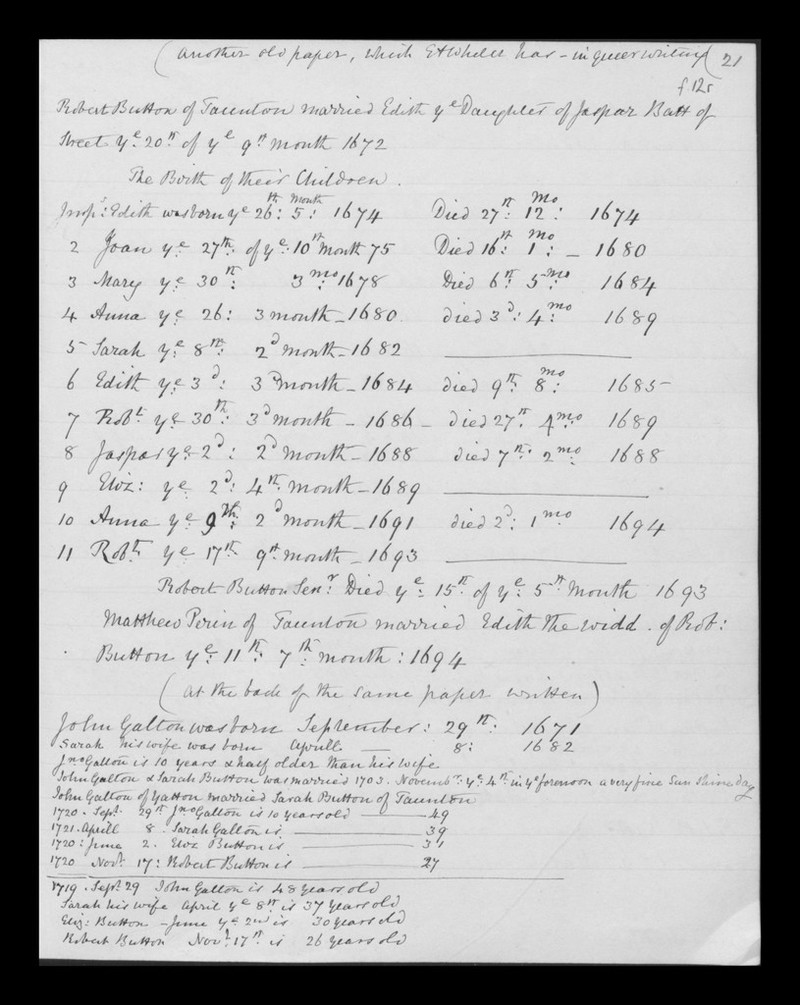 (Another old paper, which EHWheler has - in queer writing) 21
f 12r
Robert Button of Taunton married Edith ye Daughter of Jaspar Batt of
Street ye 20th of ye 9th month 1672
The Birth of their Children.
Imps: Edith was born ye 26th: 5 month: 1674 Died 27th: 12 mo: 1674
2 Joan ye 27th: of ye 10th month 75 Died 16th: 1 mo: - 1680
3 Mary ye 30th: 3 mo: 1678 Died 6th 5 mo: 1684
4 Anna ye 26: 3 month - 1680 died 3d: 4 mo: 1689
5 Sarah ye 8th: 2d month - 1682
6 Edith ye 3d: 3d month - 1684 died 9th 8 mo: 1685
7 Robt ye 30th: 3d month - 1686 - died 27th 4 mo: 1689
8 Jaspar ye 2d: 2d month - 1688 died 7th: 2 mo: 1688
9 Eliz: ye 2d: 4th month - 1689
10 Anna ye 9th: 2d month - 1691 died 2d: 1 mo 1694
11 Robt ye 17th 9th month - 1693
Robert Button Senr: Died ye 15th of ye 5th Month 1693
Matthew Perin of Taunton married Edith the widd. of Rob:
Button ye 11th: 7th month: 1694
(at the back of the same paper written)
John Galton was born September: 29th: 1671
Sarah his wife was born Aprill — 8: 1682
Jno Galton is 10 years & half older than his wife
John Galton & Sarah Button was married 1703. Novembr: ye 4th in ye forenoon a very fine Sun shine day
John Galton of Yatton married Sarah Button of Taunton
1720. Sept. 29th Jno Galton is 10 years old — 49
1721. Aprill 8. Sarah Galton is — 39
1720: June 2. Eliz Button is — 31
1720 Novr. 17: Robert Button is — 27
1719. Sept 29 John Galton is 48 years old
Sarah his wife April ye 8th is 37 years old
Eliz: Button - June ye 2nd is 30 years old
Robert Button Novr. 17th is 26 years old